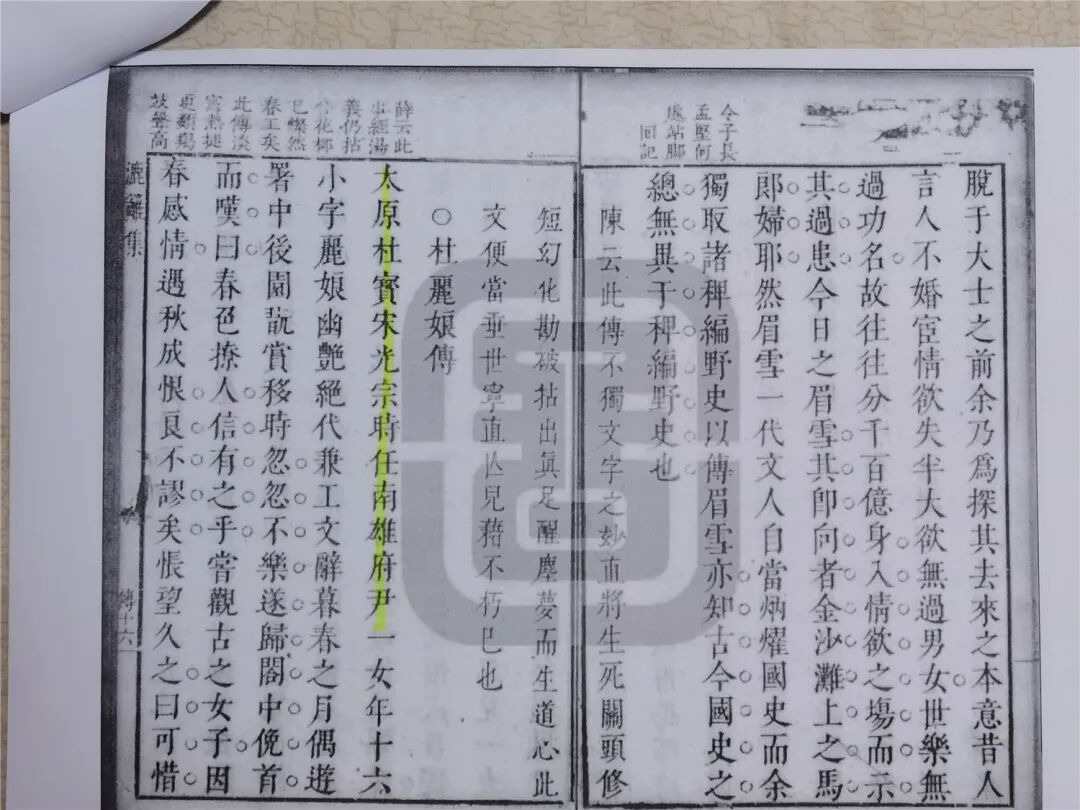 令子長
孟堅何
處站脚
回記
脫于大士之前余乃爲探其去來之本意昔人
言人不婚宦情欲失半大欲無過男女世樂無
過功名故往往分千百億身入情欲之塲而示
其過患今日之眉雪其卽向者金沙灘上之馬
郎婦耶然眉雪一代文人自當炳燿國史而余
獨取諸稗編野史以傳眉雪亦知古今國史之
總無異于稗編野史也
陳云此傳不獨文字之妙直將生死關頭修
短幻化勘破拈出眞足醒塵夢而生道心此
文便當垂世寧直此兒藉不朽已也
薛云此
事經湯
義仍拈
春工矣
此傳淡
○杜麗娘傳
太原杜寳宋光宗時任南雄府尹一女年十六
小字麗娘幽艷絕代兼工文辭暮春之月偶遊
署中後園翫賞移時忽忽不樂遂歸閣中俛首
而嘆曰春色撩人信有之乎嘗觀古之女子因
春感情遇秋成恨良不謬矣悵望久之曰可惜
漉籬集
傳十六